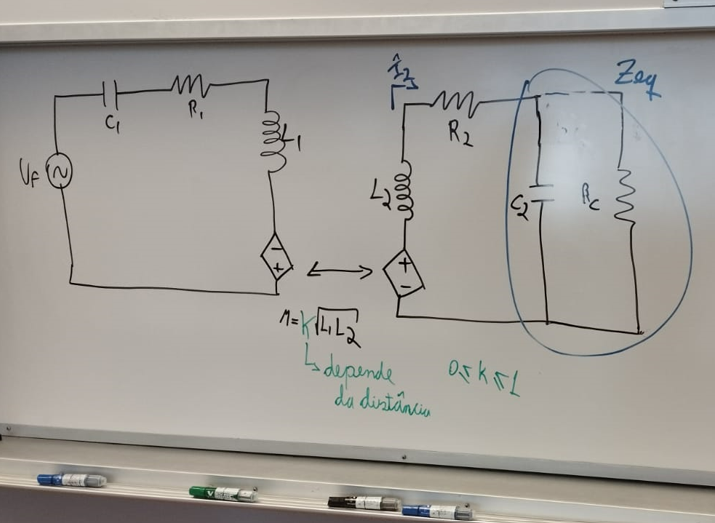 C1
R1
L1
Vf
-
+
Î2
R2
Zeq
L2
C2
Rc
+
-
M=K√L1L2
↳ depende
da distância
0≤K≤1